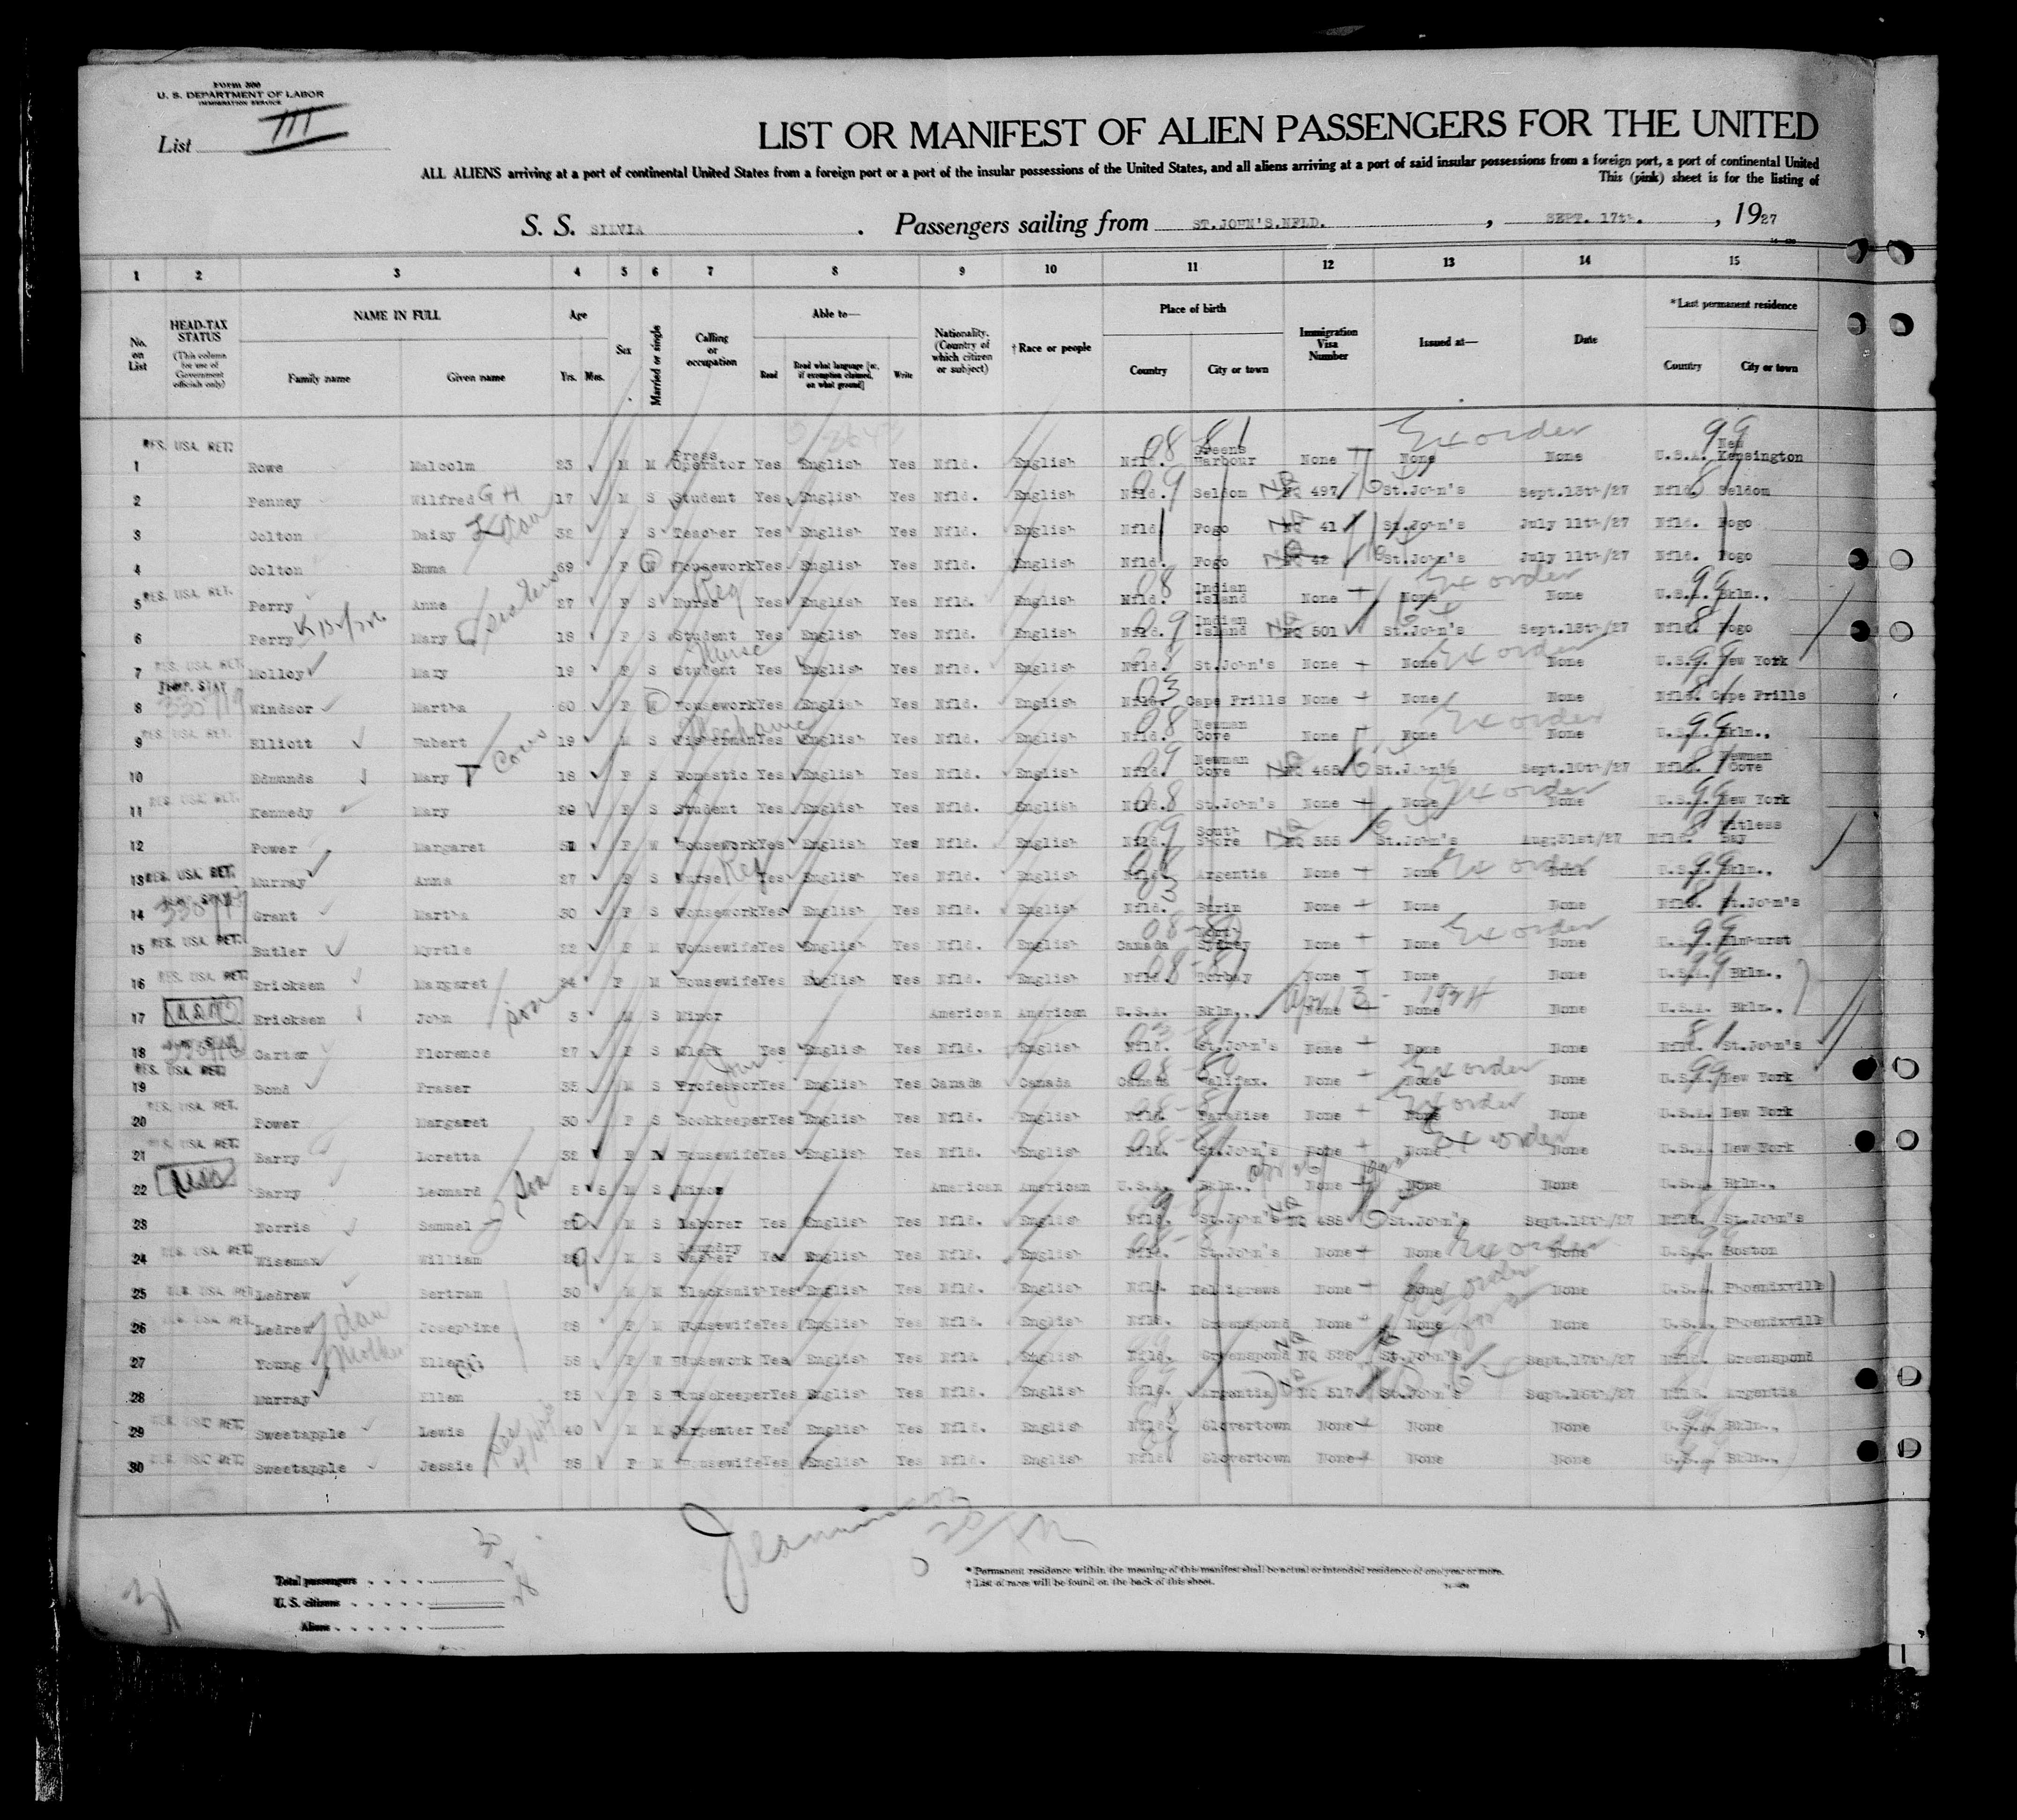 Form 500
U. S. DEPARTMENT OF LABOR
IMMIGRATION SERVICE
List III
LIST OR MANIFEST OF ALIEN PASSENGERS FOR THE UNITED
ALL ALIENS arriving at a port of continental United States from a foreign port or a port of the insular possessions of the United States, and all aliens arriving at a port of said insular possessions from a foreign port, a port of continental United
This (pink) sheet is for the listing of
S. S. SILVIA . Passengers sailing from ST.JOHN'S.NFLD. , SEPT. 17th. , 1927
1 2 3 4 5 6 7 8 9 10 11 12 13 14 15
No. on List HEAD-TAX STATUS (This column for use of Government officials only) NAME IN FULL Family name Given name Age Yrs. Mos. Sex Married or single Calling or occupation Able to— Read Read what language [or, if exemption claimed, on what ground] Write Nationality. (Country of which citizen or subject) † Race or people Place of birth Country City or town Immigration Visa Number Issued at— Date *Last permanent residence Country City or town
1 RES. USA. RET. Rowe Malcolm 23 M M Press Operator Yes English Yes Nfld. English Nfld. Greens Harbour None None Ex order None U.S.A. New Kensington
2 Penney Wilfred G H 17 M S Student Yes English Yes Nfld. English Nfld. Seldom NQ 497 St.John's Sept.13th/27 Nfld. Seldom
3 Colton Daisy 32 F S Teacher Yes English Yes Nfld. English Nfld. Fogo NQ 41 St.John's July 11th/27 Nfld. Fogo
4 Colton Emma 69 F W Housework Yes English Yes Nfld. English Nfld. Fogo NQ 42 St.John's July 11th/27 Nfld. Fogo
5 RES. USA. RET. Perry Anne 27 F S Nurse Reg Yes English Yes Nfld. English Nfld. Indian Island None None Ex order None U.S.A. Bkln.,
6 Perry Mary sisters 18 F S Student Yes English Yes Nfld. English Nfld. Indian Island NQ 501 St.John's Sept.13th/27 Nfld. Fogo
7 RES. USA. RET. Molloy Mary 19 F S Student Nurse Yes English Yes Nfld. English Nfld. St.John's None None Ex order None U.S.A. New York
8 TEMP. STAY Windsor Martha 60 F W Housework Yes English Yes Nfld. English Nfld. Cape Frills None None None Nfld. Cape Frills
9 RES. USA. RET. Elliott Hubert 19 M S Fisherman Mechanic Yes English Yes Nfld. English Nfld. Newman Cove None None Ex order None U.S.A. Bkln.,
10 Edmunds Mary T 18 F S Domestic Yes English Yes Nfld. English Nfld. Newman Cove NQ 455 St.John's Sept.10th/27 Nfld. Newman Cove
11 RES. USA. RET. Kennedy Mary 20 F S Student Yes English Yes Nfld. English Nfld. St.John's None None Ex order None U.S.A. New York
12 Power Margaret 51 F W Housework Yes English Yes Nfld. English Nfld. South Shore NQ 355 St.John's Aug;31st/27 Nfld. Witless Bay
13 RES. USA. RET. Murray Anna 27 F S Nurse Reg Yes English Yes Nfld. English Nfld. Argentia None None Ex order None U.S.A. Bkln.,
14 Grant Martha 30 F S Housework Yes English Yes Nfld. English Nfld. Burin None None None Nfld. St.John's
15 RES. USA. RET. Butler Myrtle 22 F M Housewife Yes English Yes Nfld. English Canada North Sydney None None Ex order None U.S.A. Elmhurst
16 RES. USA. RET. Ericksen Margaret 24 F M Housewife Yes English Yes Nfld. English Nfld. Torbay None None None U.S.A. Bkln.,
17 Ericksen John son 3 M S Minor American American U.S.A. Bkln., None None None U.S.A. Bkln.,
18 Carter Florence 27 F S Clerk Yes English Yes Nfld. English Nfld. St.John's None None None Nfld. St.John's
19 RES. USA. RET. Bond Fraser 35 M S Professor Yes English Yes Canada Canada Canada Halifax. None None Ex order None U.S.A. New York
20 RES. USA. RET. Power Margaret 30 F S Bookkeeper Yes English Yes Nfld. English Nfld. Paradise None None Ex order None U.S.A. New York
21 RES. USA. RET. Barry Loretta 32 F M Housewife Yes English Yes Nfld. English Nfld. St.John's None None Ex order None U.S.A. New York
22 Barry Leonard son 5 6 M S Minor American American U.S.A. Bkln., None None None U.S.A. Bkln.,
23 Norris Samuel M S Laborer Yes English Yes Nfld. English Nfld. St.John's NQ St.John's Sept.12th/27 Nfld. St.John's
24 RES. USA. RET. Wiseman William M S Laundry Washer Yes English Yes Nfld. English Nfld. St.John's None None Ex order None U.S.A. Boston
25 RES. USA. RET. Ledrew Bertram 30 M M Blacksmith Yes English Yes Nfld. English Nfld. Kelligrews None None Ex order None U.S.A. Phoenixville
26 RES. USA. RET. Ledrew Josephine 28 F M Housewife Yes English Yes Nfld. English Nfld. Greenspond None None None U.S.A. Phoenixville
27 Young Mother Ellen 58 F W Housework Yes English Yes Nfld. English Nfld. Greenspond NQ 526 St.John's Sept.17th/27 Nfld. Greenspond
28 Murray Ellen 25 F S Housekeeper Yes English Yes Nfld. English Nfld. Argentia NQ 517 St.John's Sept.16th/27 Nfld. Argentia
29 Sweetapple Lewis 40 M M Carpenter Yes English Yes Nfld. English Nfld. Glovertown None None None U.S.A. Bkln.,
30 Sweetapple Jessie 28 F M Housewife Yes English Yes Nfld. English Nfld. Glovertown None None None U.S.A. Bkln.,
Total passengers
U. S. citizens
Aliens
* Permanent residence within the meaning of this manifest shall be actual or intended residence of one year or more.
† List of races will be found on the back of this sheet.